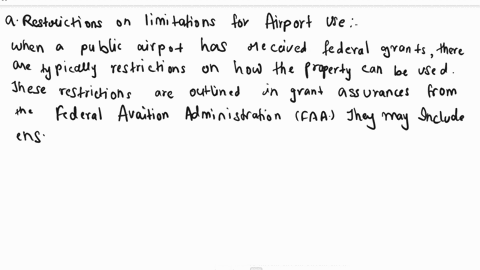 a. Restrictions on limitations for Airport Use :-
when a public airpot has received federal grants, there
are typically restrictions on how the property can be used.
These restrictions are outlined in grant assurances from
the Federal Avaition Administration (FAA.) They may Include
ens.